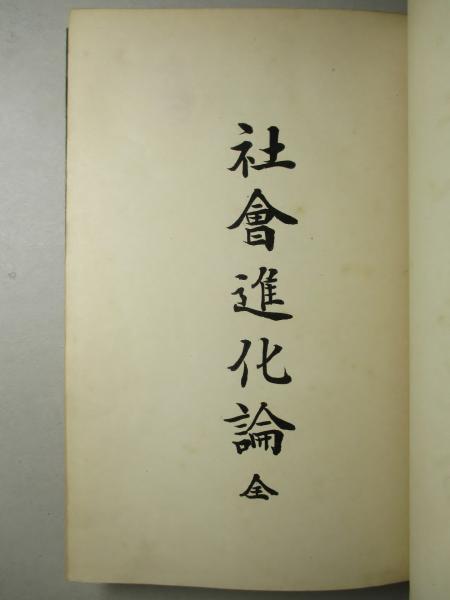 社會進化論全